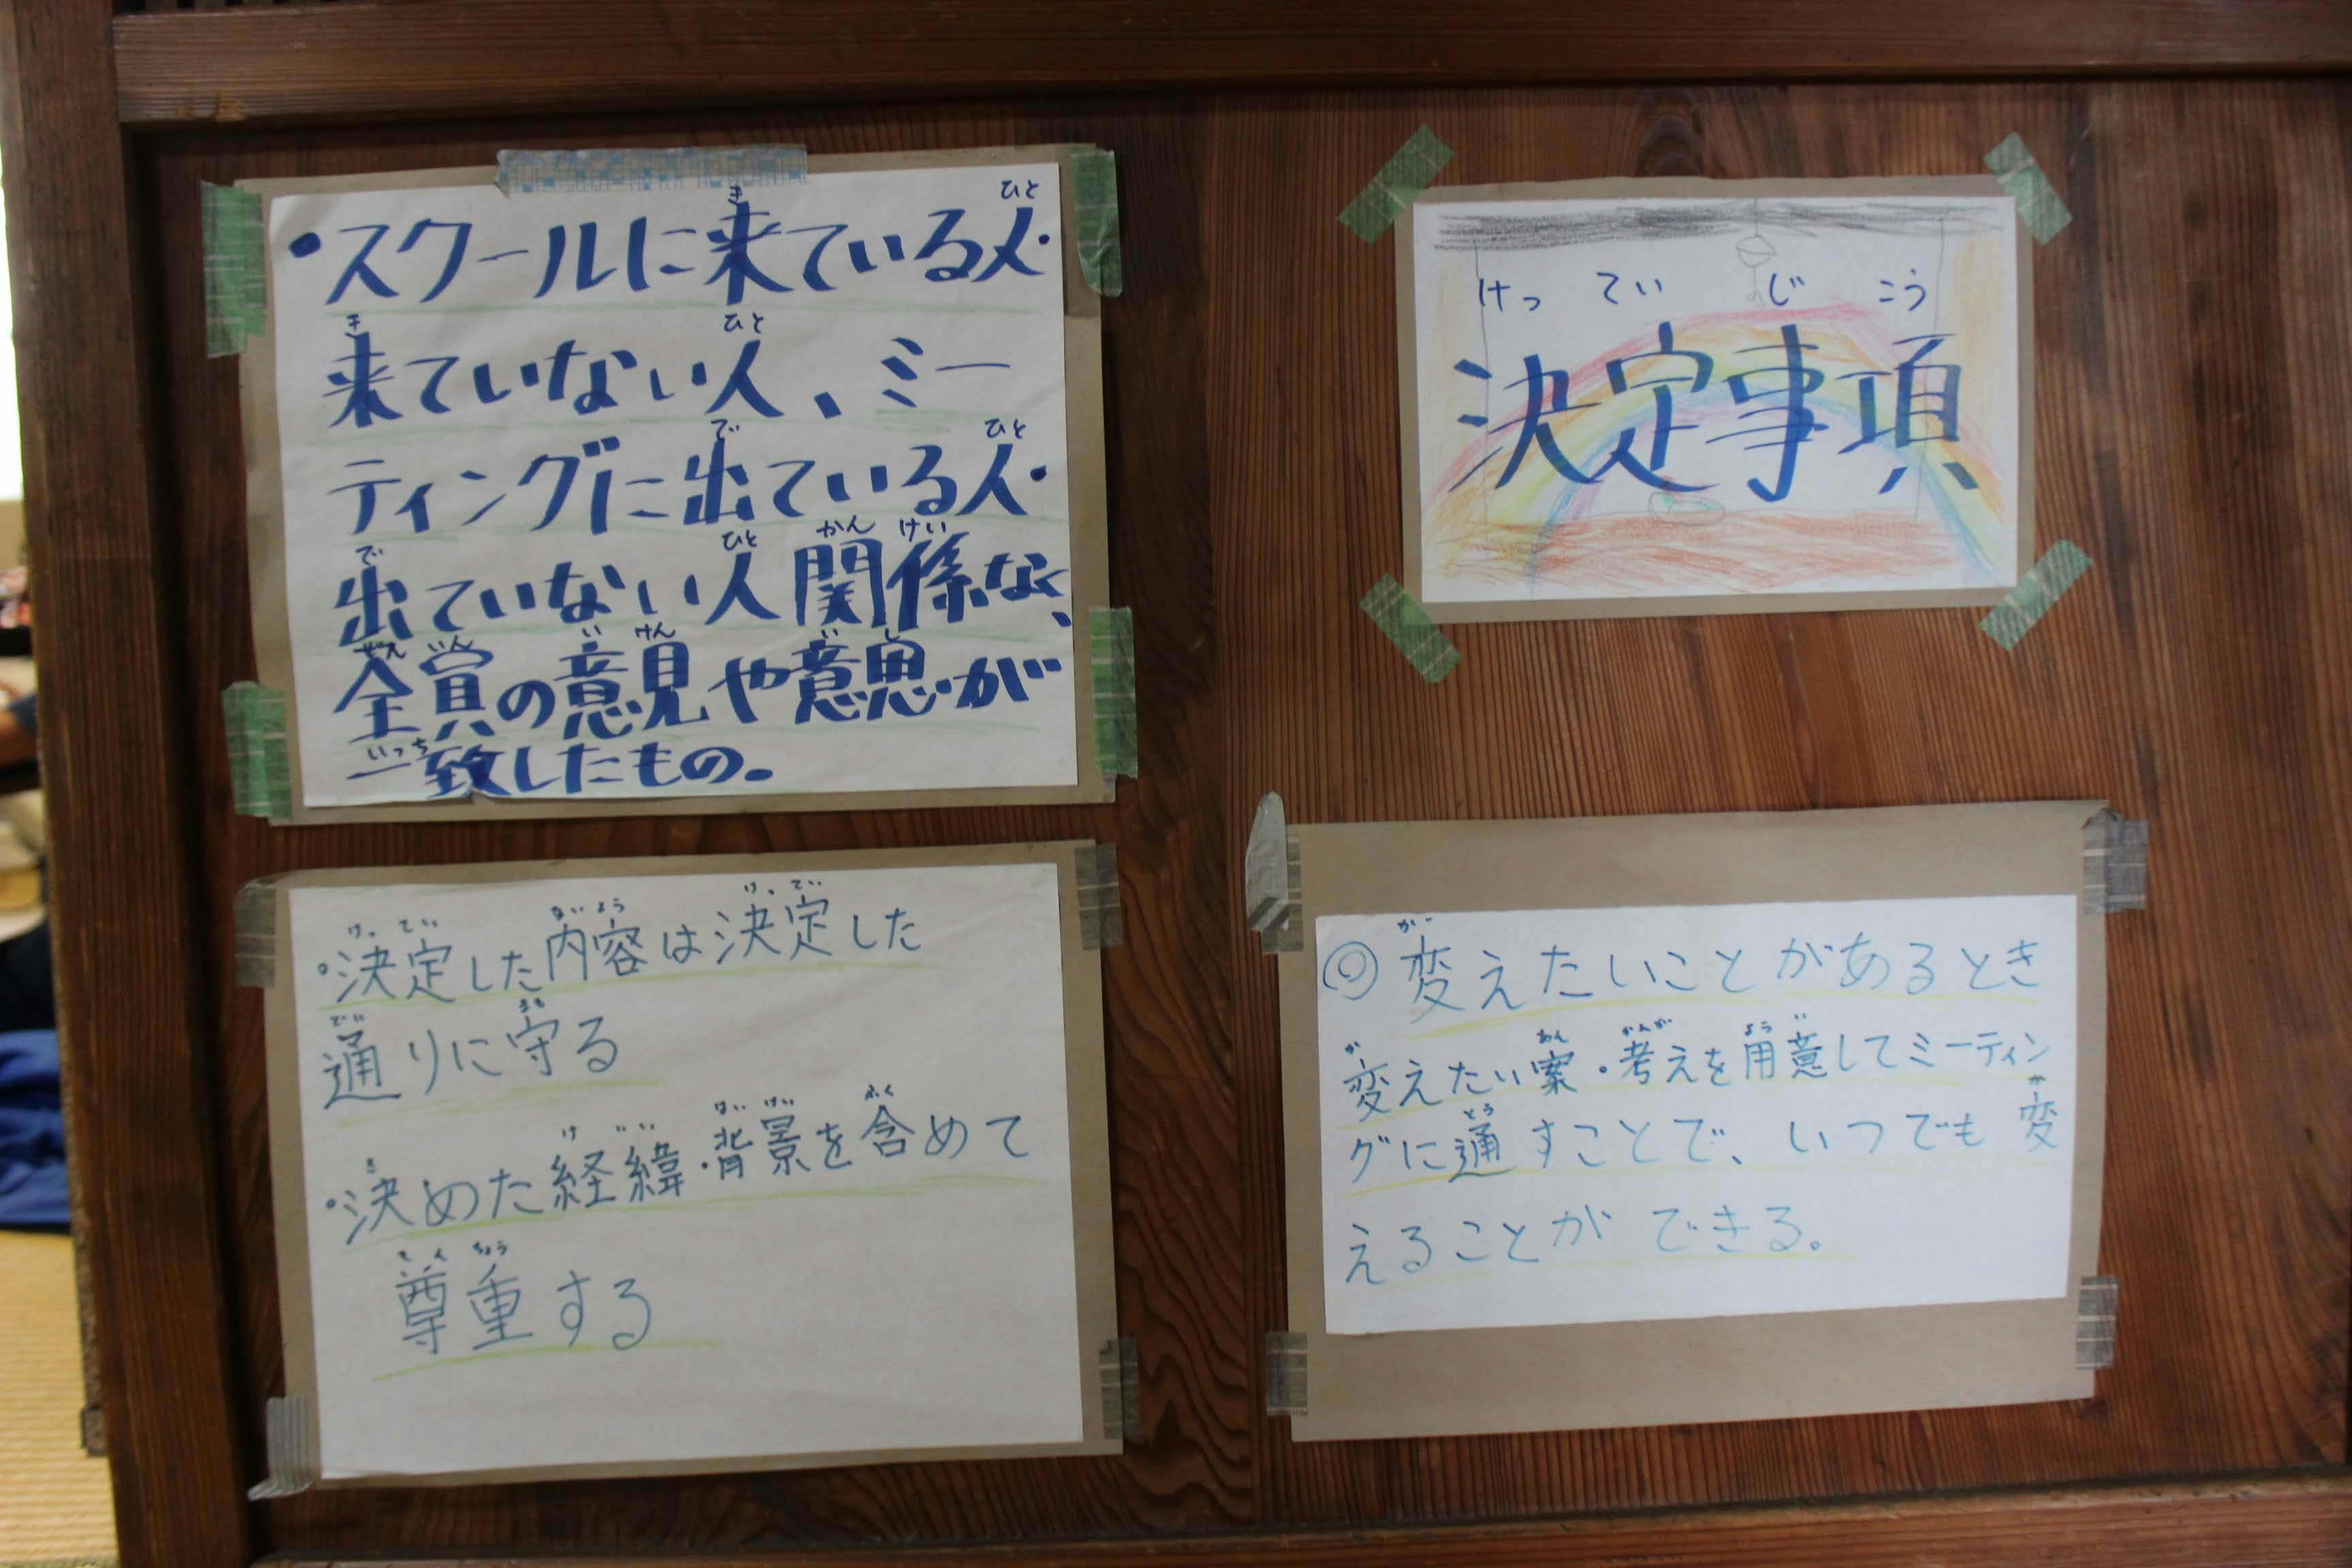 けっていじこう
決定事項
・スクールに来ている人・
来ていない人、ミー
ティングに出ている人・
出ていない人関係なく、
全員の意見や意思が
一致したもの。
・決定した内容は決定した
通りに守る
・決めた経緯・背景を含めて
尊重する
◎変えたいことがあるとき
変えたい案・考えを用意してミーティン
グに通すことで、いつでも変
えることができる。